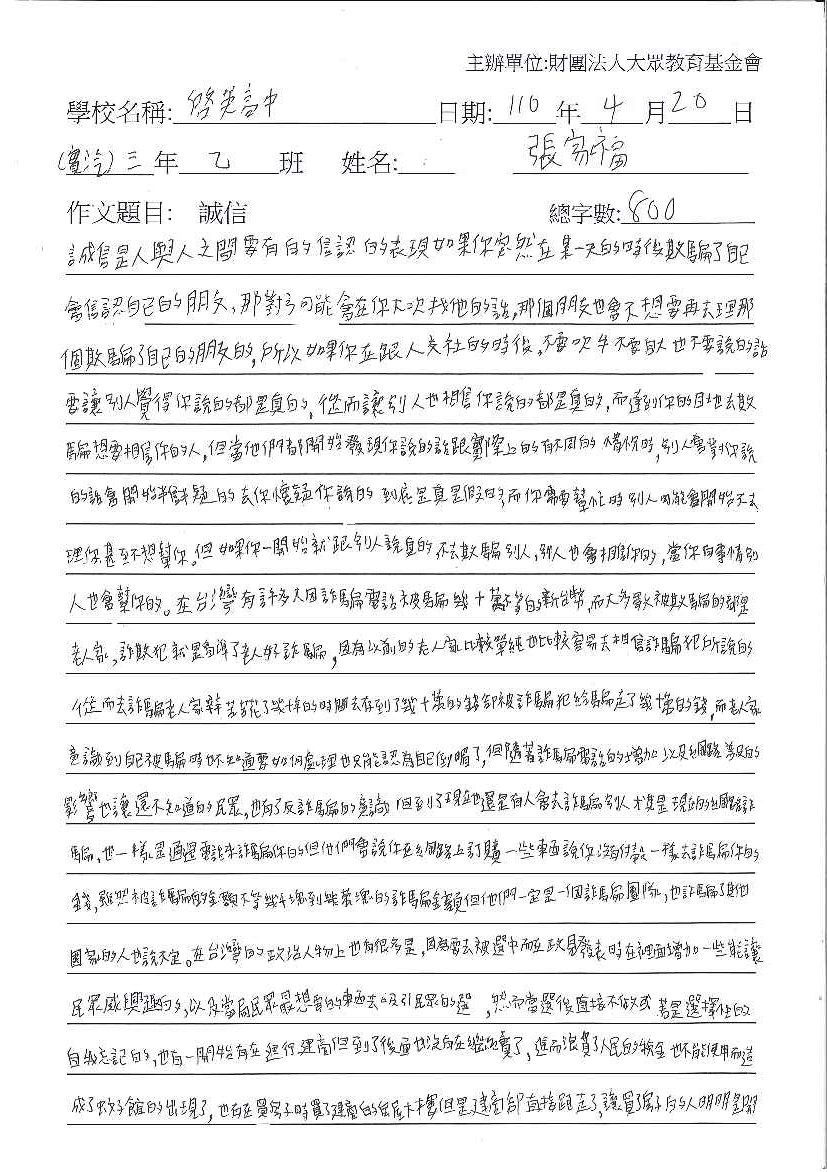 主辦單位:財團法人大眾教育基金會
學校名稱: 啓英高中 日期: 110 年 4 月 20 日
(實汽) 三 年 乙 班 姓名: 張家福
作文題目: 誠信 總字數: 800
誠信是人與人之間要有的信認的表現如果你忽然在某一天的時後欺騙了自己
會信認自己的朋友、那對方可能會在你大次找他的話,那個朋友也會不想要再去理那
個欺騙了自己的朋友的,所以如果你在跟人交社的時後,不要吹牛不要自大也不要說的話
要讓別人覺得你說的都是真的,從而讓別人也相信你說的都是真的,而達到你的目地去欺
騙想要相信你的人,但當他們都開始發現你說的話跟實際上的有不同的情況時,別人會對你說
的話會開始半信半疑的去你懷疑你說的到底是真是假的?而你需要幫忙時別人可能會開始不去
理你甚至不想幫你。但如果你一開始就跟別人說真的不去欺騙別人,別人也會相信你的,當你有事情別
人也會幫你的。在台灣有許多人因詐騙電話被騙幾十萬不等的新台幣,而大多數被欺騙的都是
老人家,詐欺犯就是看準了老人好詐騙,因為以前的老人家比較單純也比較容易去相信詐騙犯所說的
從而去詐騙老人家辛苦花了幾十年的時間去存到了幾十萬的錢卻被詐騙犯給騙走了幾十萬的錢,而老人家
意識到自己被騙時也不知道要如何處理也只能認為自己倒楣了,但隨著詐騙電話的增加以及網路普及的
影響也讓還不知道的民眾,也有了反詐騙的意識但到了現在也還是有人會去詐騙別人尤其是現在的網路詐
騙,也一樣是透過電話來詐騙你的但他們會說你在網路上訂購一些東西說你沒有付款一樣去詐騙你的
錢,雖然被詐騙的金額不等幾千塊到幾萬塊的詐騙金額但他們一定是一個詐騙團隊,也詐騙了其他
國家的人也說不定。在台灣的政治人物上也有很多是,因為要去被選中而在政見發表時在裡面增加一些能讓
民眾感興趣的,以及當局民眾最想要的東西去吸引民眾的選,然而當選後直接不做或若是選擇性的
自我忘記的,也有一開始有在進行建商但到了後面也沒有在繼續了,進而浪費了人民的稅金也不能使用而造
成了蚊子館的出現了,也有在買房子時買了建商的但是建商卻直接跑走了,讓買了房子的人明明是開